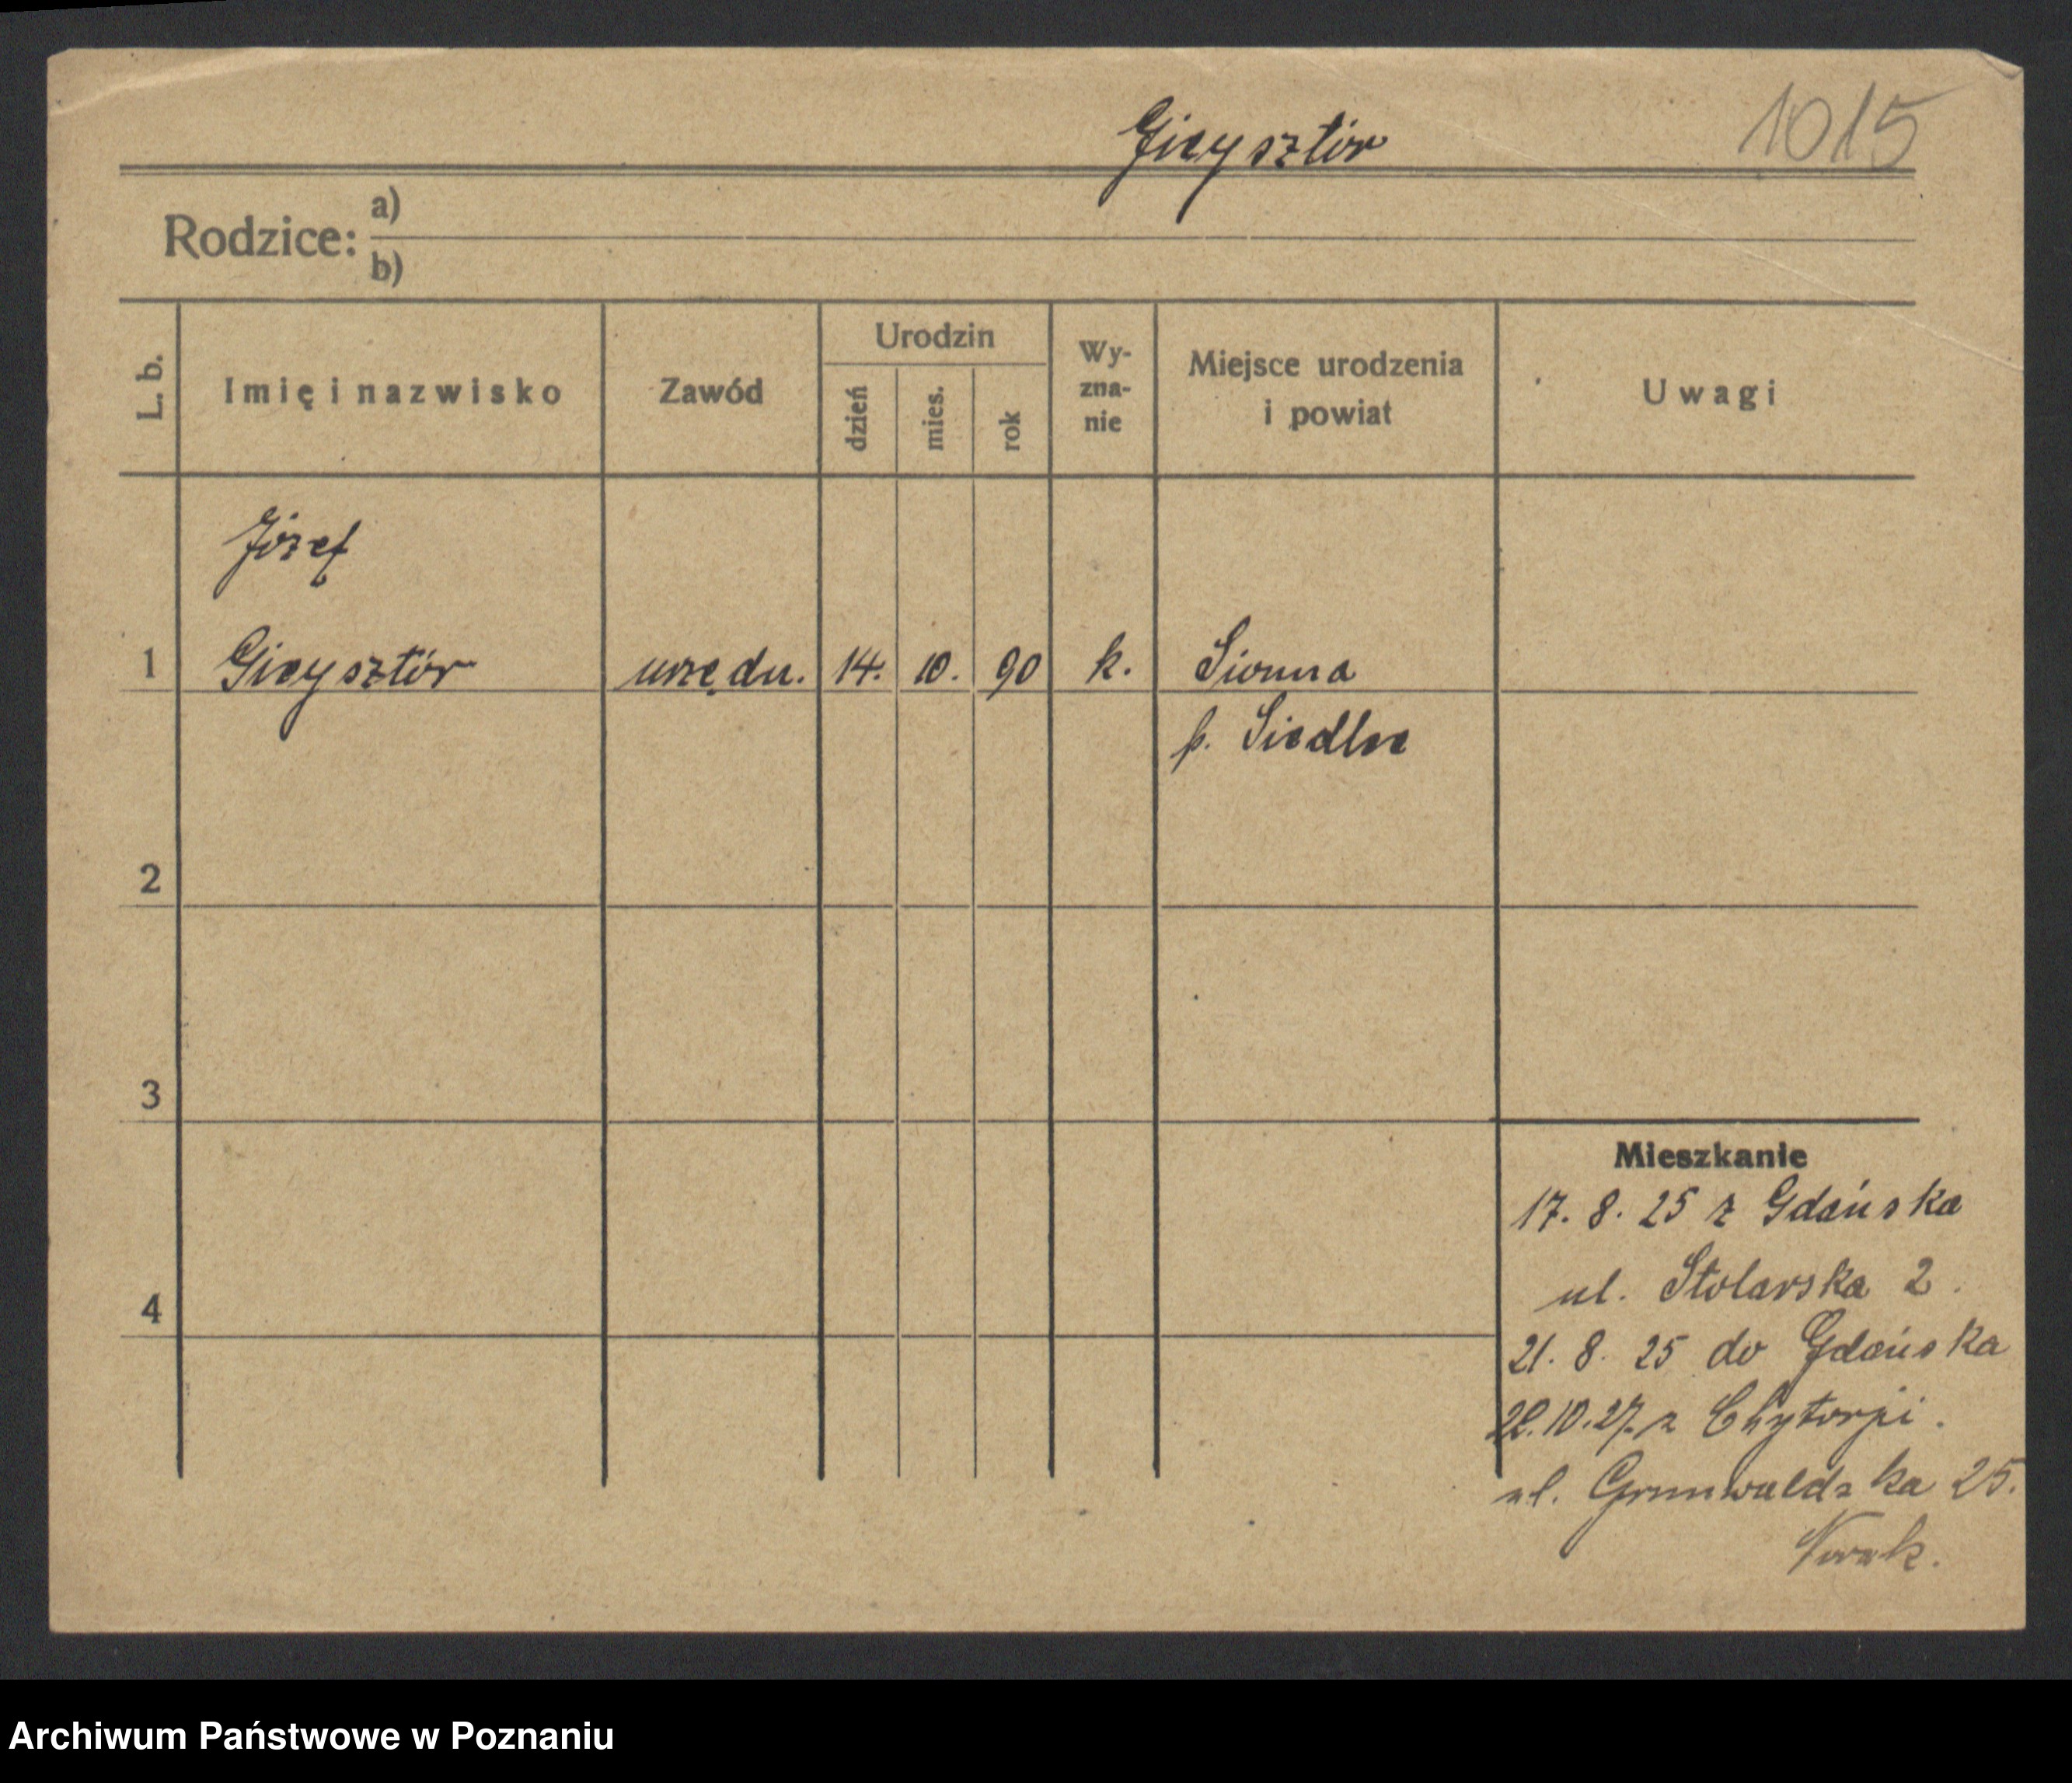 Gieysztór 1015
Rodzice: a)
b)
L. b. Imię i nazwisko Zawód Urodzin dzień mies. rok Wy-zna-nie Miejsce urodzenia i powiat Uwagi
Józef
1 Gieysztór urzędn. 14. 10. 90 k. Sionna
p. Siedlce
2
3
Mieszkanie
17. 8. 25 z Gdańska
ul. Stolarska 2.
4
21. 8. 25 do Gdańska
22.10.27. z
ul. Grunwaldzka 25.
Nowak.
Archiwum Państwowe w Poznaniu